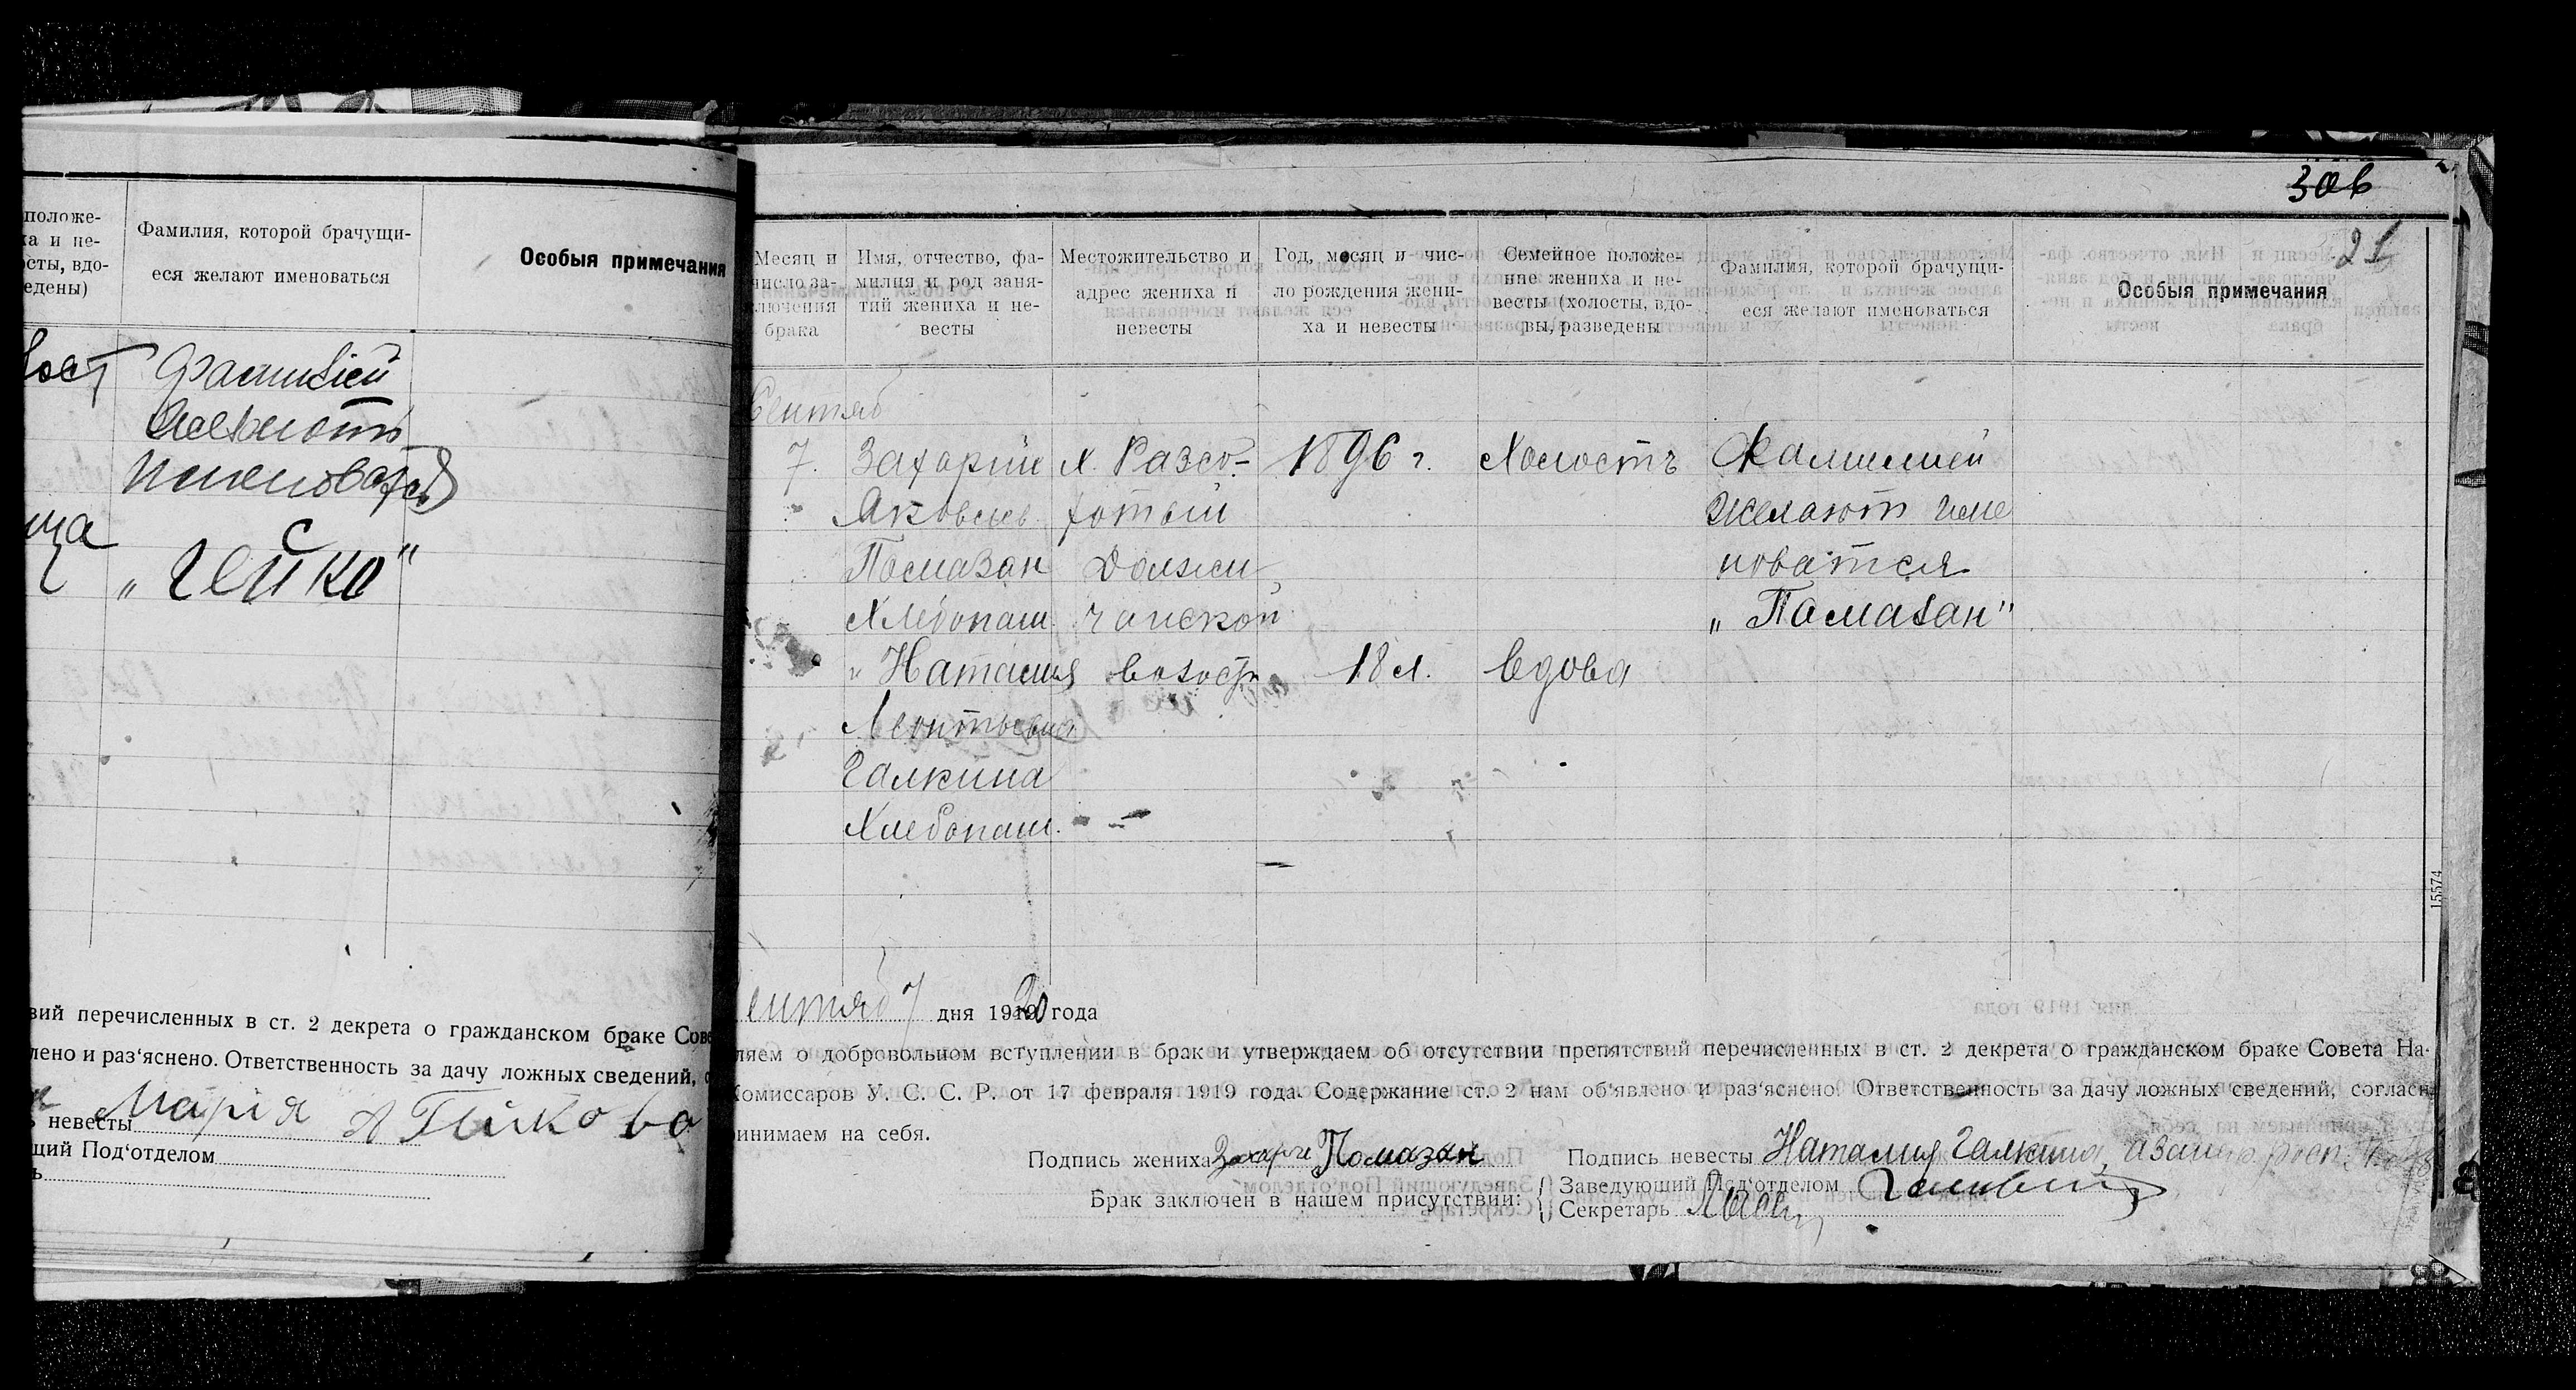 положе-
ха и не-
осты, вдо-
едены)
Фамилия, которой брачущи-
еся желают именоваться
Особыя примечания
Фамилiей
желають
именоваться
"Гейко"
вий перечисленных в ст. 2 декрета о гражданском браке Сове
лено и раз'яснено. Ответственность за дачу ложных сведений,
невесты Марiя
щий Под'отделом
306
21
Месяц и
число за-
ключения
брака
Имя, отчество, фа-
милия и род заня-
тий жениха и не-
весты
Местожительство и
адрес жениха и
невесты
Год, месяц и чис-
ло рождения жени-
ха и невесты
Семейное положе-
ние жениха и не-
весты (холосты, вдо-
вы, разведены
Фамилия, которой брачущи-
еся желают именоваться
Особыя примечания
Сентяб
7.
Захарий
Яковлев.
Помазан
Хлебопаш.
х. Разсо-
хотый
Должи
чанской
волости
1896 г.
Холостъ
Фамилией
желают име
новатся
"Помазан"
"Наталия
Леонтьевна
Галкина
Хлебопаш.
18 л.
вдова
ентяб 7 дня 1920 года
ляем о добровольном вступлении в брак и утверждаем об отсутствии препятствий перечисленных в ст. 2 декрета о гражданском браке Совета На-
Комиссаров У. С. С. Р. от 17 февраля 1919 года. Содержание ст. 2 нам об'явлено и раз'яснено. Ответственность за дачу ложных сведений, согласн
инимаем на себя.
Подпись жениха Захарий Помазан Подпись невесты Наталия Галкина
Брак заключен в нашем присутствии: Заведующий Под'отделом
Секретарь
15574